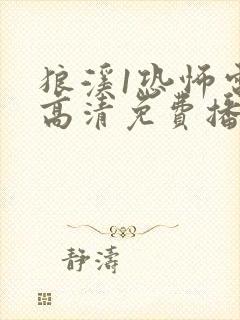 狼溪1恐怖电
高清免费播
静涛